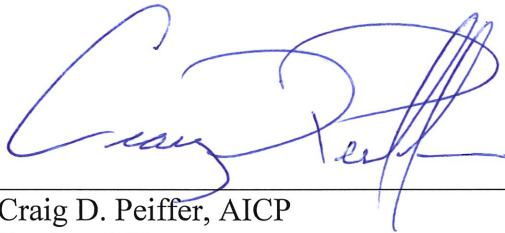 Craig D Peiffer
Craig D. Peiffer, AICP